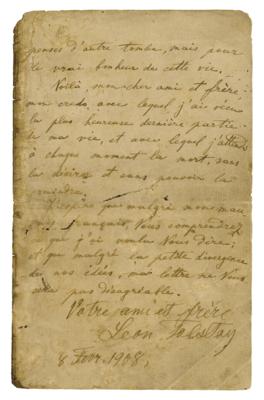 penses d'autre tombe, mais pour
le vrai bonheur de cette vie.
Voilà, mon cher ami et frère
mon credo, avec lequel j'ai vécu
la plus heureuse dernière partie
de ma vie, et avec lequel j'attends
à chaque moment la mort, sans
la désirer et sans pouvoir la
craindre.
J'espère que malgré mon mau
vais français, Vous comprendrez
ce que j'ai voulu Vous dire;
et que malgré la petite divergence
de nos idées, ma lettre ne Vous
sera pas désagréable.
Votre ami et frère
Leon Tolstoy
8 Fevr. 1908,